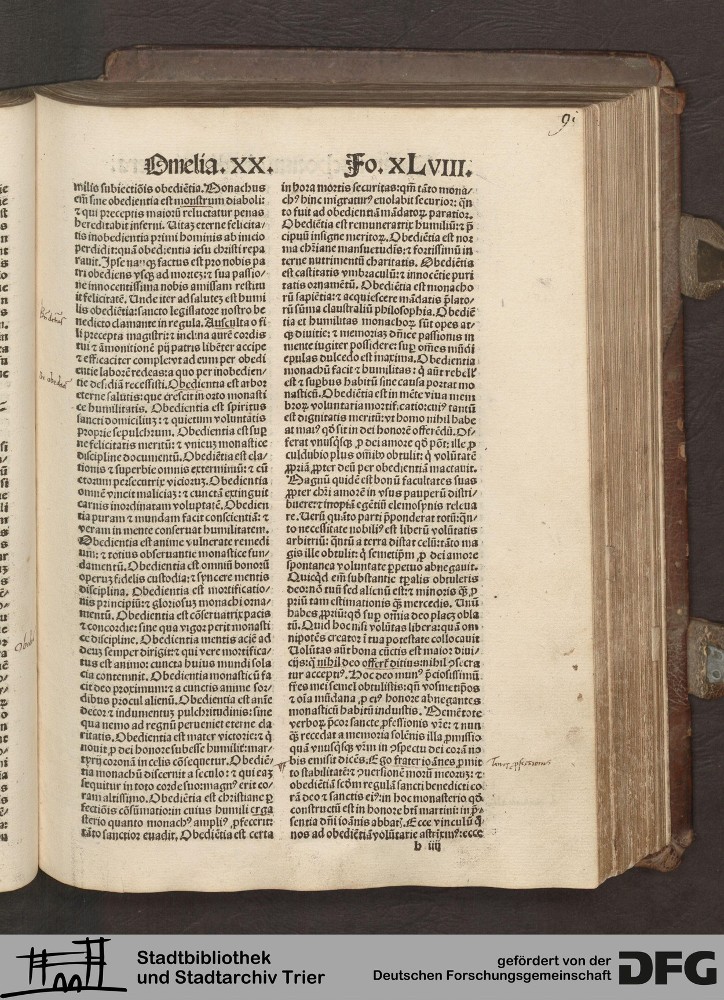 Omelia. XX.
Fo. XLVIII.
milis subiectiōis obediētia. Monachus
em̄ sine obedientia est monstrum diaboli:
⁊ qui preceptis maiorū reluctatur penas
hereditabit inferni. Uitaꝫ eterne felicita/
tis inobedientia primi hominis ab inicio
perdidit: quā obedientia iesu christi repa
rauit. Ipse namqꝫ factus est pro nobis pa
tri obediens vsqꝫ ad mortez: ⁊ sua passio/
ne innocentissima nobis amissam restitu
it felicitatē. Unde iter ad salutez est humi
lis obediētia: sancto legislatore nostro be
nedicto clamante in regula. Ausculta o fi
li precepta magistri: ⁊ inclina aurē cordis
tui ⁊ āmonitionē pij patris libēter accipe
⁊ efficaciter comple: vt ad eum per obedi
entie laborē redeas: a quo per inobedien/
tie desidiā recessisti. Obedientia est arbor
eterne salutis: que crescit in orto monasti
ce humilitatis. Obedientia est spiritus
sancti domicilium: ⁊ quietum voluntatis
proprie sepulchrum. Obedientia est sup̄
ne felicitatis meritū: ⁊ vnicuꝫ monastice
discipline documentū. Obediētia est ela/
tionis ⁊ superbie omnis exterminiū: ⁊ cū
ctorum persecutrix vicioruꝫ. Obedientia
omnē vincit maliciaꝫ: ⁊ cunctā extinguit
carnis inordinatam voluptatē. Obedien
tia puram ⁊ mundam facit conscientiā: ⁊
veram in mente conseruat humilitatem.
Obedientia est anime vulnerate remedi
um: ⁊ totius obseruantie monastice fun/
damentū. Obedientia est omniū bonorū
operuꝫ fidelis custodia: ⁊ syncere mentis
disciplina. Obedientia est mortificatio/
nis principiū: ⁊ gloriosuꝫ monachi orna/
mentū. Obedientia est cōseruatrix pacis
⁊ concordie: sine qua vigor perit monasti
ce discipline. Obedientia mentis aciē ad
deuꝫ semper dirigit: ⁊ qui vere mortifica/
tus est animo: cuncta huius mundi sola
cia contemnit. Obedientia monasticū fa
cit deo proximum: ⁊ a cunctis anime sor/
dibus procul alienū. Obedientia est aīe
decor ⁊ indumentuꝫ pulchritudinis: sine
qua nemo ad regnū perueniet eterne cla
ritatis. Obedientia est mater victorie: ⁊ q̄
nouit p̱ dei honore subesse humilit: mar/
tyrij coronā in celis cōsequetur. Obediē/
tia monachū discernit a seculo: ⁊ qui eaꝫ
sequitur in toto corde suo: magnꝰ erit co/
ram altissimo. Obediētia est christiane p̱
fectiōis cōsūmatio: in cuius humili erga
sterio quanto monachꝰ ampliꝰ ꝓfecerit:
tāto sanctior euadit. Obediētia est certa
in hora mortis securitas: qm̄ tāto mona/
chꝰ hinc migraturꝰ euolabit securior: q̄n
to fuit ad obedientiā mādatoꝝ paratior.
Obediētia est remuneratrix humiliū: ⁊ p̄
cipuū insigne meritoꝝ. Obediētia est nor
ma chr̄iane mansuetudīs: ⁊ fortissimū in
terne nutrimentū charitatis. Obediētia
est castitatis vmbraculū: ⁊ innocētie puri
tatis ornamētū. Obediētia est monacho
rū sapiētia: ⁊ acquiescere mādatis p̄lato/
rū sūma claustraliū philosophia. Obediē
tia et humilitas monachoꝝ sūt opes at/
qꝫ diuitie: ⁊ memoriaꝫ dn̄ice passionis in
mente iugiter possidere: sup̱ om̄es mūdi
epulas dulcedo est maxima. Obedientia
monachū facit ⁊ humilitas: q̄ aūt rebell'
est ⁊ sup̱bus habitū sine causa portat mo
nasticū. Obediētia est in mēte viua mem
broꝝ voluntaria mortificatio: cuiꝰ tantū
est dignitatis meritū: vt homo nihil habe
at maiꝰ qd̄ sit in dei honorē offerēdū. Of/
ferat vnusqⁱsqꝫ p̱ dei amore qd̄ pōt: ille p̱
culdubio plus oīnibꝰ obtulit: qⁱ volūtatē
ꝓpriā ꝓpter deū per obedientiā mactauit.
Magnū quidē est bonū facultates suas
ꝓpter chr̄i amorē in vsus pauperū distri/
buere: ⁊ inopiā egētiū elemosynis releua
re. Uerū quāto parti p̄ponderat totū: q̄n/
to necessitate nobiliꝰ est liberū volūtatis
arbitriū: q̄ntū a terra distat celū: tāto ma
gis ille obtulit: qⁱ semetip̄m ꝓ dei amore
spontanea voluntate perpetuo abnegauit.
Quicqⁱd em̄ substantie tp̄alis obtuleris
deo: nō tuū sed alienū est: ⁊ minoris qꝫ p̱
priū tam estimationis qꝫ mercedis. Unū
habes ꝓpriū: qd̄ sup̱ om̄ia deo placꝫ obla
tū. Quid hoc nisi volūtas libera: quā om
nipotēs creator ī tua potestate collocauit
Uolūtas aūt bona cūctis est maior diui/
cijs: qⁱ nihil deo offerr̄ ditius: nihil ꝯsecra
tur acceptiꝰ. Hoc deo munꝰ p̄ciosissimū
fr̄es mei semel obtulistis: qn̄ vosmetip̄os
⁊ oīa mūdana p̱ eiꝰ honore abnegantes
monasticū habitū induistis. Memētote
verboꝝ p̄cor sancte ꝓfessionis vr̄e: ⁊ nun
qꝫ recedat a memoria solēnis illa ꝓmissio
quā vnusqⁱsqꝫ vr̄m in ꝯspectu dei corā no
bis emisit dicēs. Ego frater ioānes ꝓmit
to stabilitatē: ⁊ ꝯuersionē morū meoruꝫ: ⁊
obediētiā scd̄m regulā sancti benedicti co
rā deo ⁊ sanctis eiꝰ: in hoc monasterio qd̄
constructū est in honore bt̄i martini: in p̄/
sentia dn̄i ioānis abbatꝭ. Ecce vinculū qⁱ
nos ad obediētiā volūtarie astrīximꝰ: ecce
h iiij
Stadtbibliothek
und Stadtarchiv Trier
gefördert von der
Deutschen Forschungsgemeinschaft
DFG